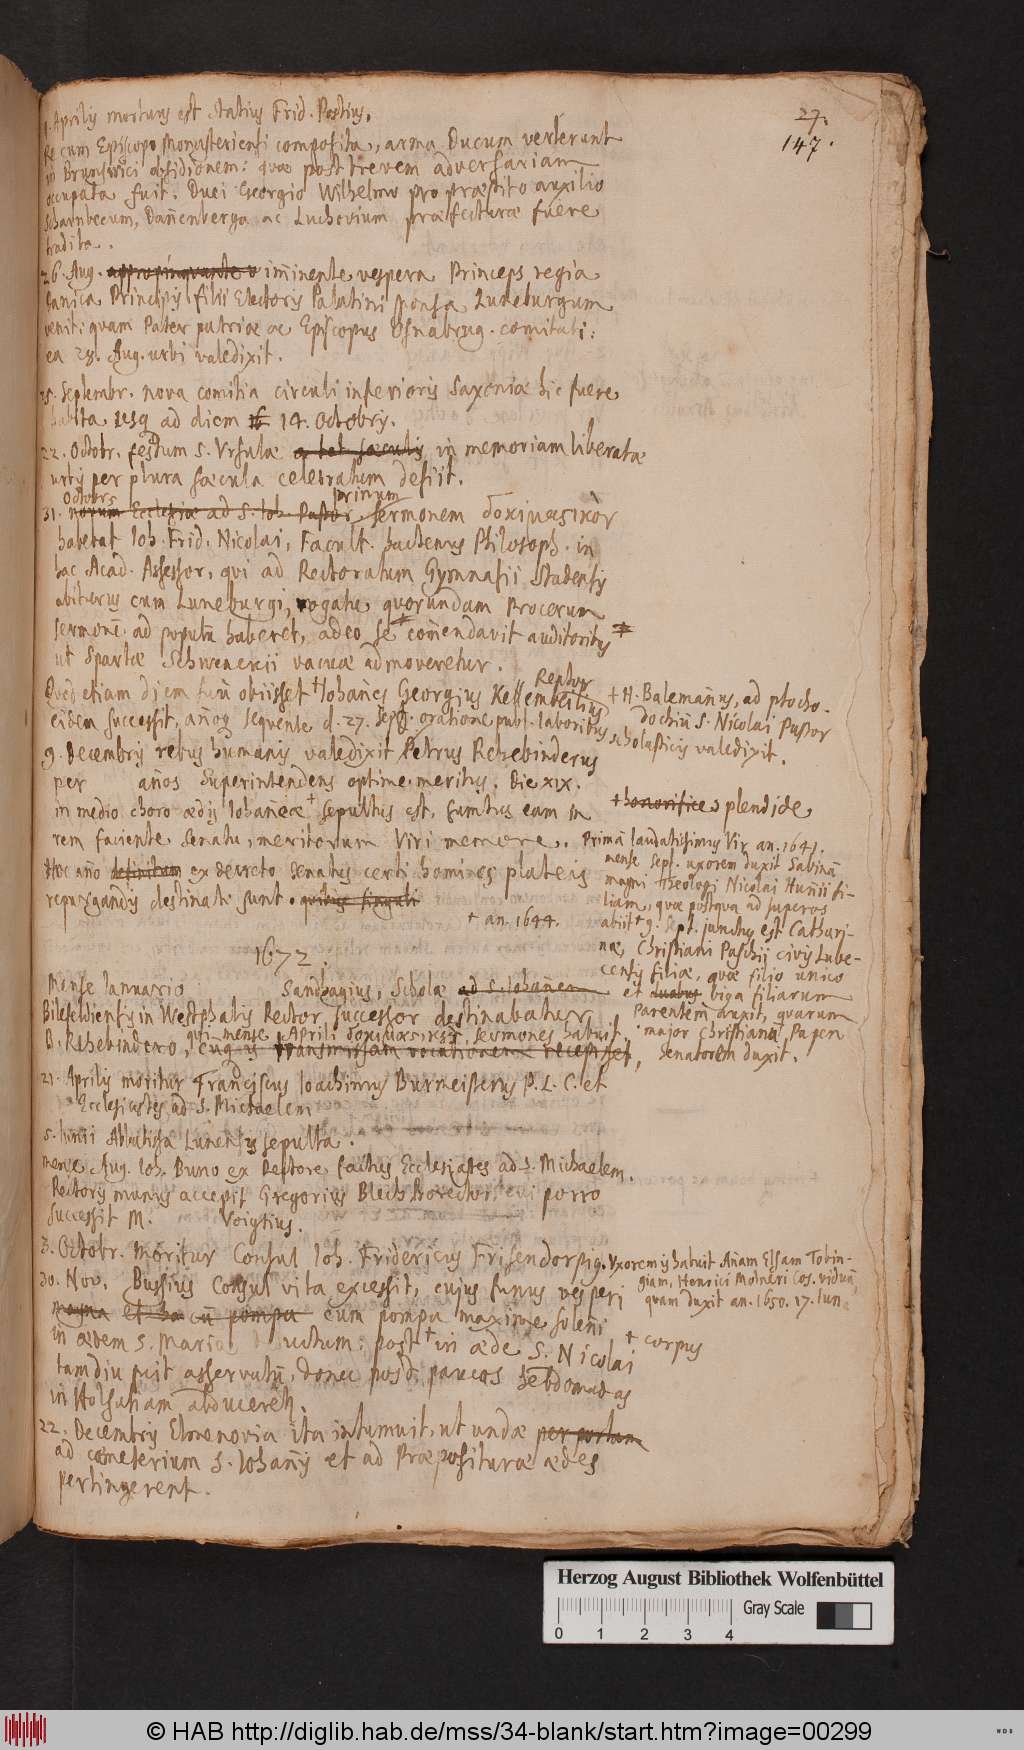 27.
147.
Aprilis mortuus est Statius Frid. Postius.
Re cum Episcopo Monasteriensi composita, arma Ducum verterunt
in Brunswici obsidionem: quae post brevem adversariam
occupata fuit. Duci Georgio Wilhelmo pro praestito auxilio
Scharnbecum, Dañenberga ac Luchovium praefecturae fuere
tradita.
26. Aug. appropinquante v im̃inente vespera Princeps regia
Danica Principis filii Electoris Palatini sponsa Luneburgum
venit: quam Pater patriae ac Episcopus Osnabrug. comitati:
ea 28. Aug. urbi valedixit.
25. Septembr. nova comitia circuli inferioris Saxoniae hic fuere
habita usq ad diem 14. Octobris.
22. Octobr. festum S. Ursulae a tot saeculis in memoriam liberatae
urbis per plura saecula celebratum desiit.
Octobris primum
31. horum Ecclesiae ad S. Joh. Pastor sermonem δοκιμαςικὸν
habebat Joh. Frid. Nicolai, Facult. hactenus Philosoph. in
hac Acad. Assessor, qui ad Rectoratum Gymnasii Stadensis
abiturus cum Luneburgi, rogatu quorundam Procerum
sermonẽ ad populũ haberet, adeo se com̃endavit auditoribus
ut Spartae Schwenckii vacuae admoveretur.
Quod etiam diem suũ obiisset † Johañes Georgius Kessembeilius Rector
eidem successit, añoq sequente, d. 27. Sept. oratione publ. laboribus
scholasticis valedixit.
† H. Balemañus, ad ptocho-
dochiũ S. Nicolai Pastor
9. Decembris rebus humanis valedixit Petrus Rehebinderus
per años Superintendens optime meritus. Die XIX.
in medio choro aedis Johañeae † sepultus est, sumtus eam in
rem faciente Senatu, meritorum Viri memore.
† honorifice splendide
Hoc año definitum ex decreto Senatus certi homines plateis
repurgandis destinati sunt. quibus singuli
† an. 1644.
Primã laudatissimus Vir an. 1641.
mense Sept. uxorem duxit Sabinã
magni Theologi Nicolai Huñii fi-
liam, quae postqua ad superos
abiit † 9. Sept. junctus est Cathari-
nae, Christiani Paschii civis Lube-
censis filiae, quae filio unico
et duabus biga filiarum
Parentem auxit, quarum
major Christiana, Papen
Senatorem duxit.
1672.
Mense Januario Sandhagius, Scholae ad S. Johañem
Bilefeldiensis in Westphalis Rector, successor destinabatur
B. Rehebindero, qui mense Aprili δοκιμαςικὰς sermones habuit.
cũq is transmissam vocationem recepisset,
21. Aprilis moritur Franciscus Joachimus Burmeisterus P. L. C. et
Ecclesiastes ad S. Michaelem
5. Junii Abbatissa Lunensis sepulta.
mense Aug. Joh. Buno ex Rectore factus Ecclesiastes ad S. Michaelem.
Rectoris munus accepit Gregorius Blech Prorector, cui porro
successit M. Voigtius.
3. Octobr. Moritur Consul Joh. Fridericus Frisendorpis.
Uxoremq habuit Añam Elsam Tobin-
giam, Henrici Molneri Cos. viduã
quam duxit an. 1650. 17. Jun.
30. Nov. Bussius Consul vita excessit, cujus funus vesperi
magna et cũ pompa cum pompa maxime solen̄i
in aedem S. Maria uctum: post † in aede S. Nicolai
† corpus
tamdiu fuit asservatũ, donec post paucos hebdomadas
in Holsatiam abduceretur.
22. Decembris Elmenovia ita intumuit, ut undae per portam
ad coemeterium S. Johañis et ad Praepositurae aedes
pertingerent.
Herzog August Bibliothek Wolfenbüttel
0 1 2 3 4
Gray Scale
© HAB http://diglib.hab.de/mss/34-blank/start.htm?image=00299
WDB